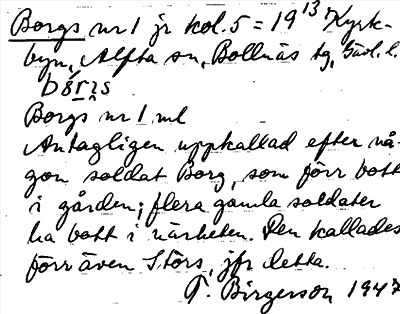 Borgs nr 1 jr kol. 5 = 19 13 Kyrk-
byn, Alfta sn, Bollnäs tg, Gävl. l.
Borgs nr 1 ml
Antagligen uppkallad efter nå-
gon soldat Borg, som förr bott
i gården; flera gamla soldater
ha bott i närheten. Den kallades
förr även Störs, jfr detta.
T. Birgerson 1947